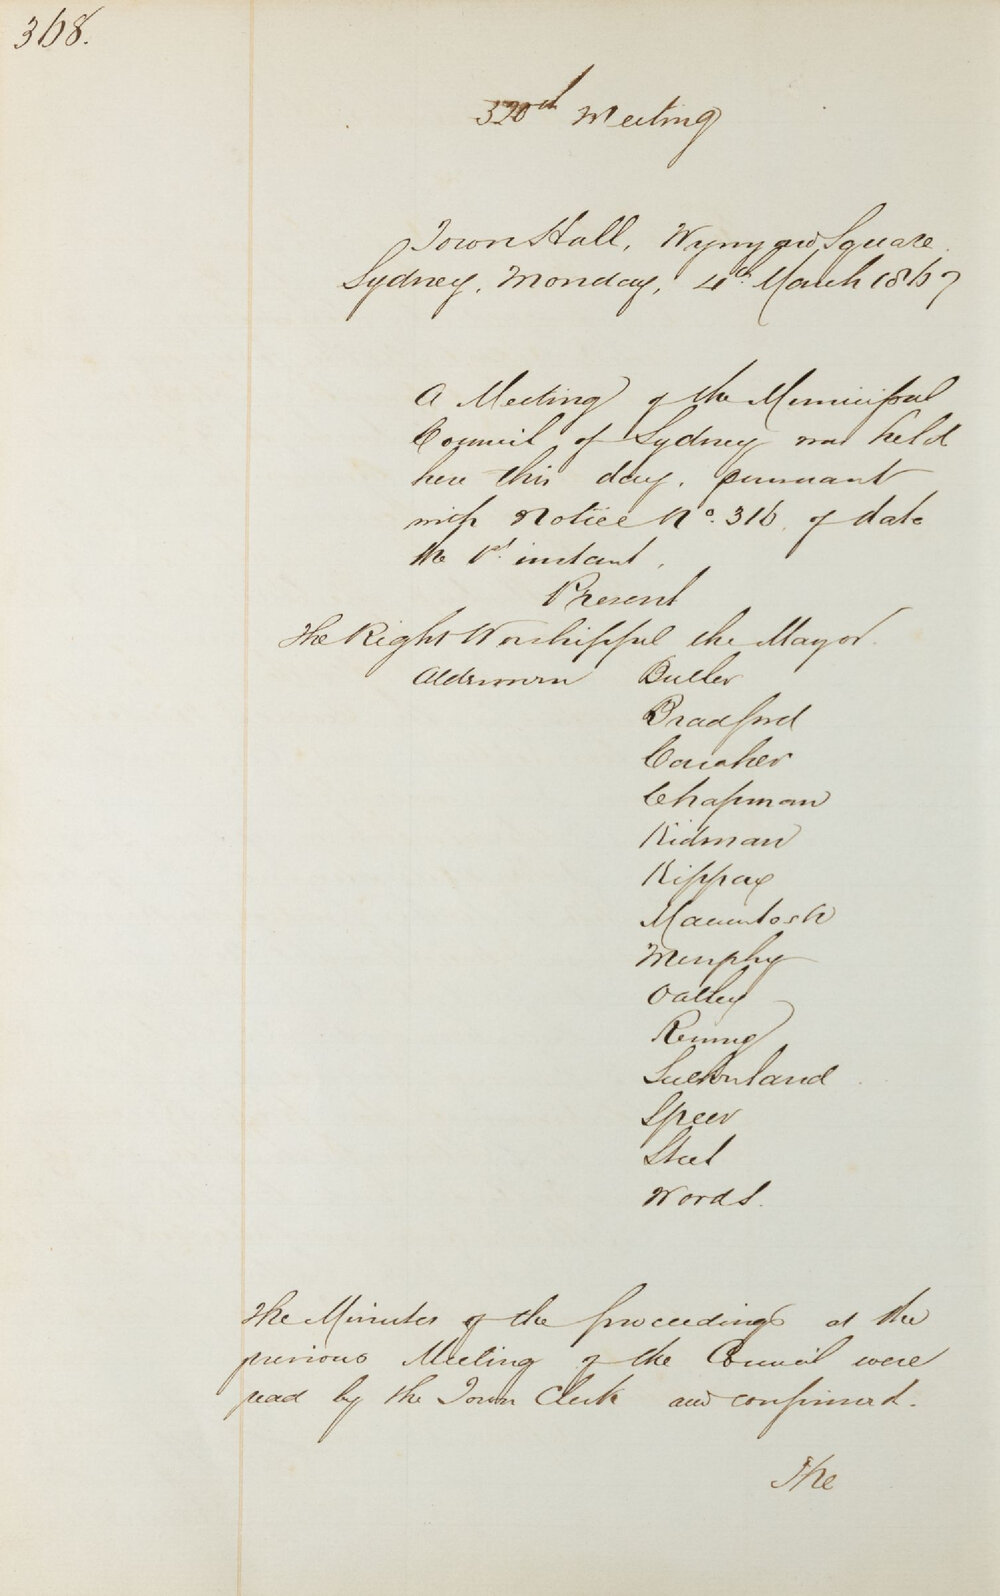 368.
320th Meeting
Town Hall, Wynyard Square,
Sydney, Monday, 4th March 1867
A Meeting of the Municipal
Council of Sydney was held
here this day, pursuant
with Notice No. 316, of date
the 1st instant.
Present
The Right Worshipful the Mayor.
Aldermen Butler
Bradford
Caraher
Chapman
Kidman
Kippax
Macintosh
Murphy
Oatley
Renny
Sutherland
Speer
Steel
Woods.
The Minutes of the proceedings at the
previous Meeting of the Council were
read by the Town Clerk and confirmed.
The